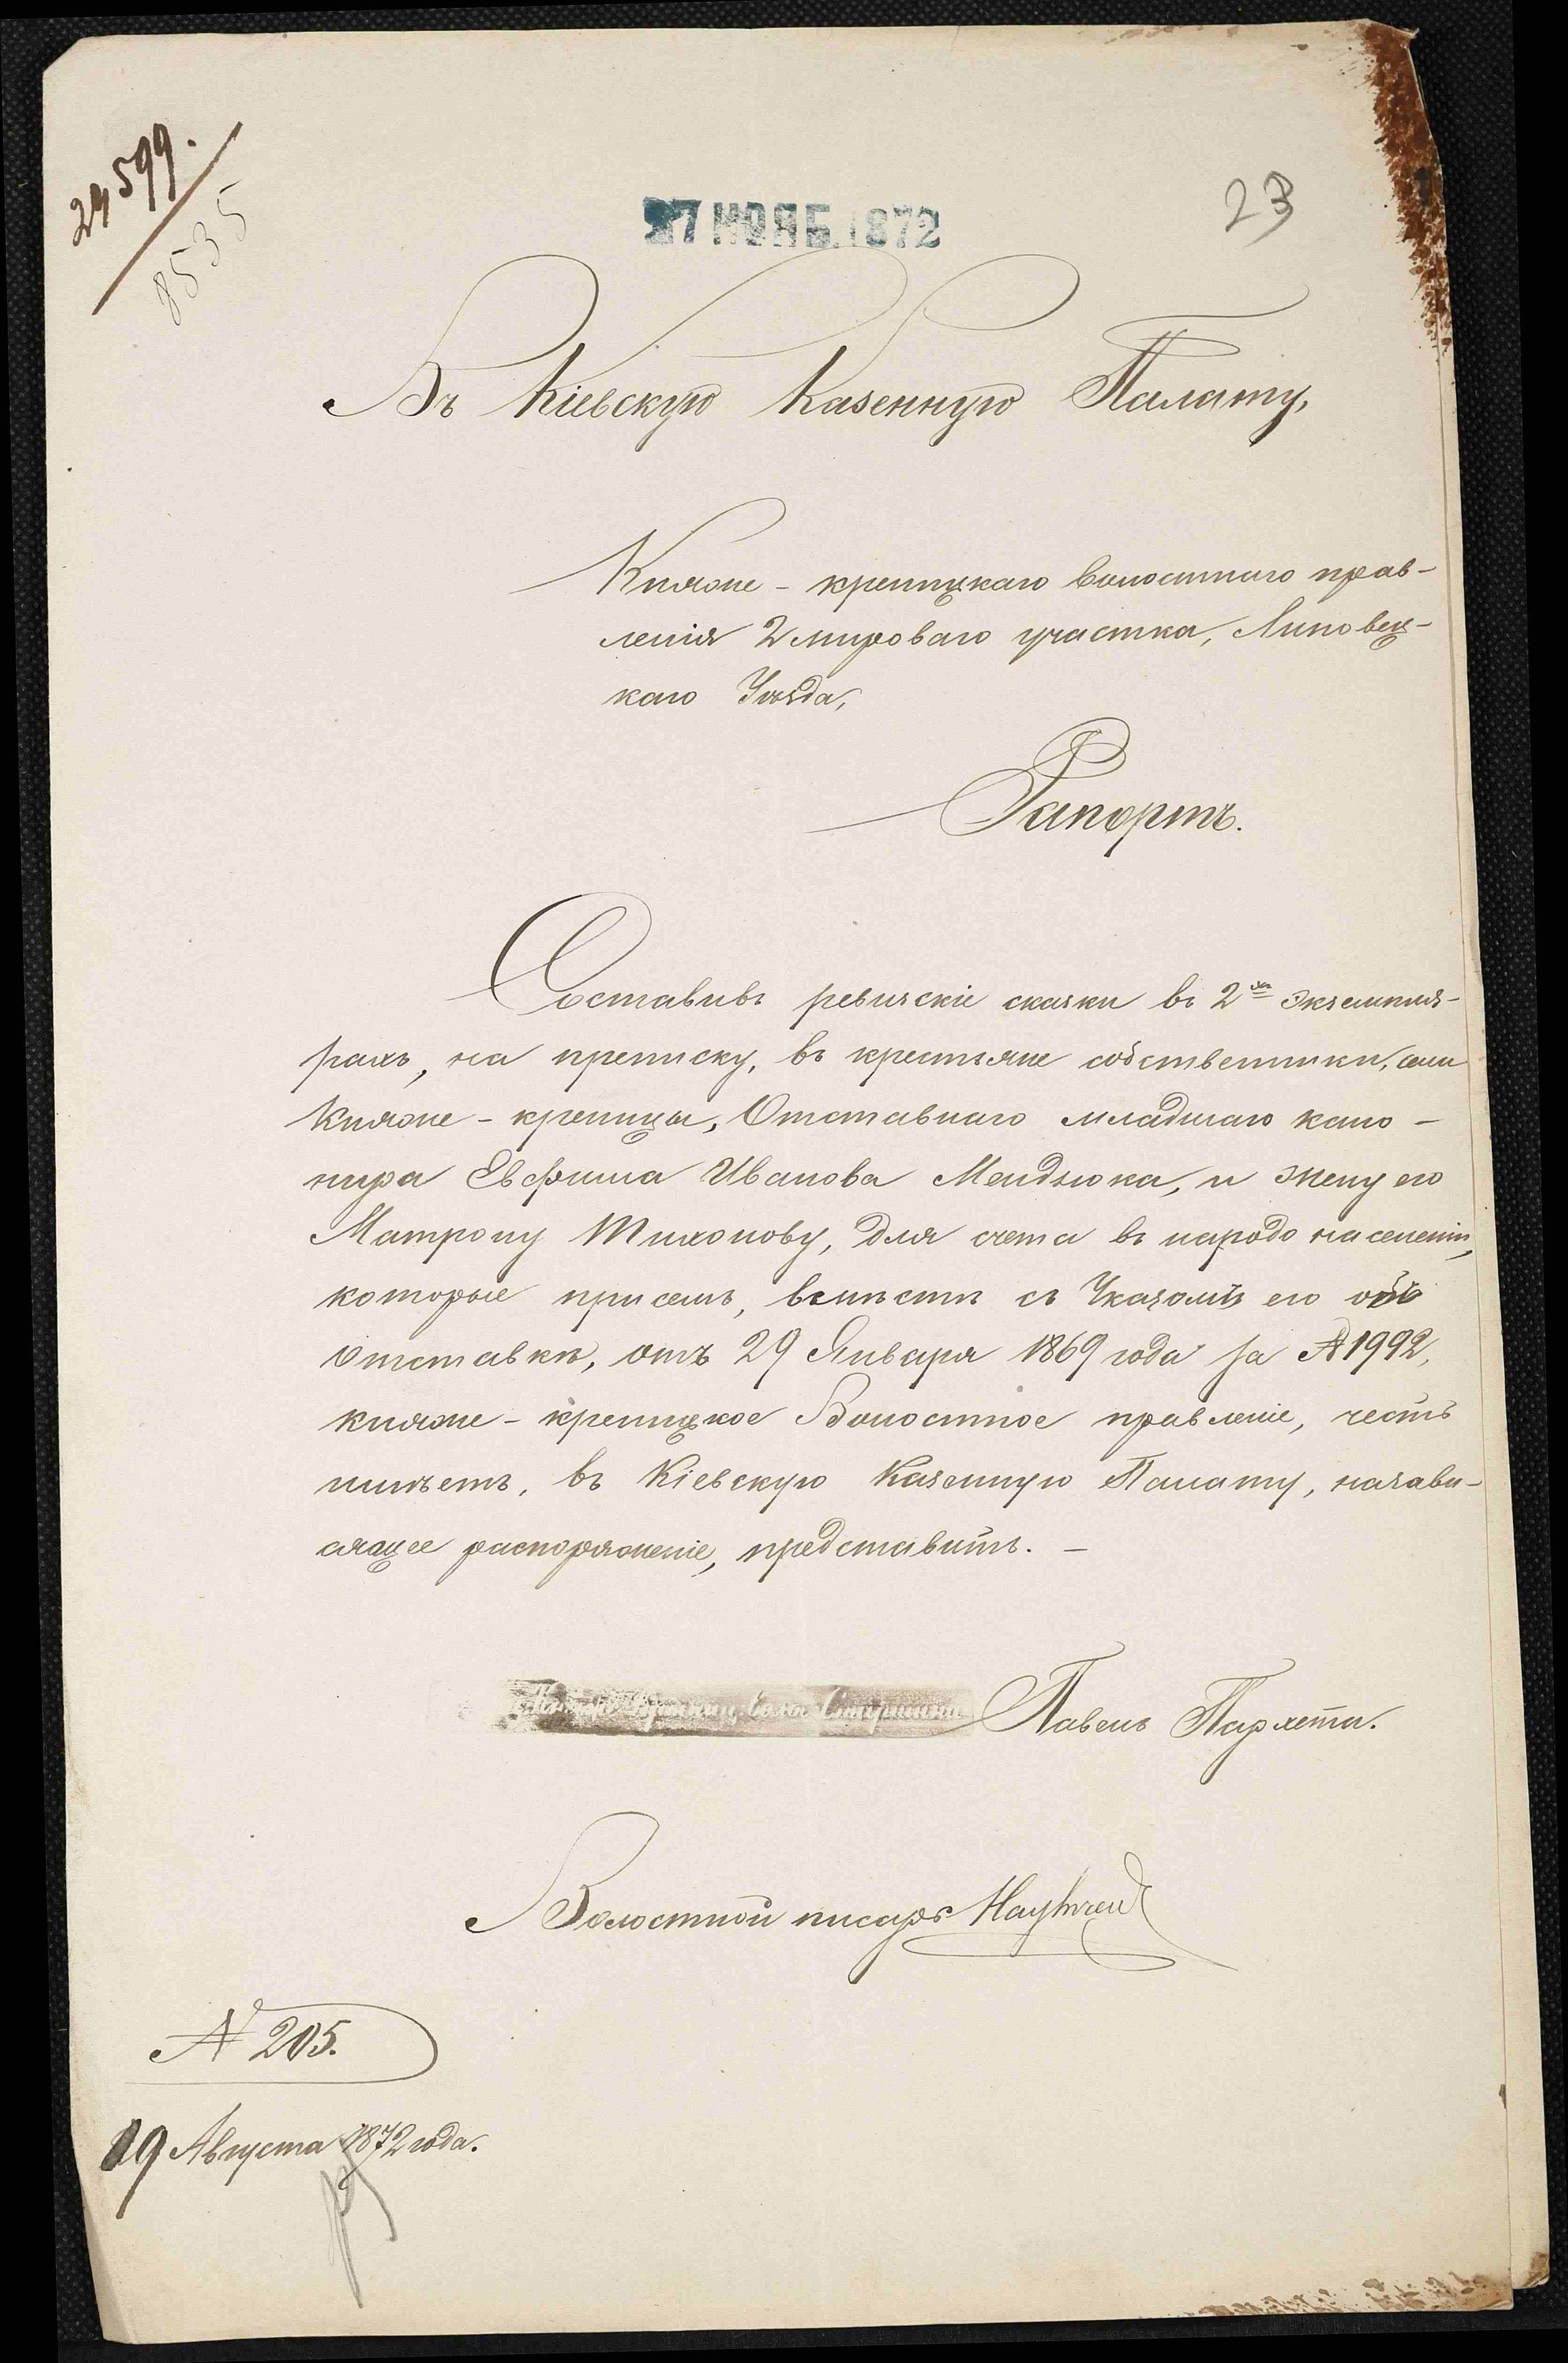 24599.
8535
27 НОЯБ. 1872
23
Въ Кіевскую Казенную Палату,
Княже-креницкаго волостнаго прав-
ленія 2 мироваго участка, Липовец-
каго Уѣзда,
Рапортъ.
Составивъ ревизскіе сказки въ 2хъ экземпля-
рахъ, на преписку, въ крестьяне собственники, села
Княже-креницы, Отставнаго младшаго кано-
нира Евфима Иванова Мендзюка, и жену его
Матрону Тихонову, для счета въ народо населеніи,
которые при семъ, вмѣстѣ съ Указомъ его объ
Отставкѣ, отъ 29 Января 1869 года за № 1992,
княже-креницкое Волостное правленіе, честь
имѣетъ, въ Кіевскую Казенную Палату, назави-
сящее распоряженіе, представить. —
Старшина Павелъ Пархета.
Волостной писарь
№ 205.
19 Августа 1872 года.